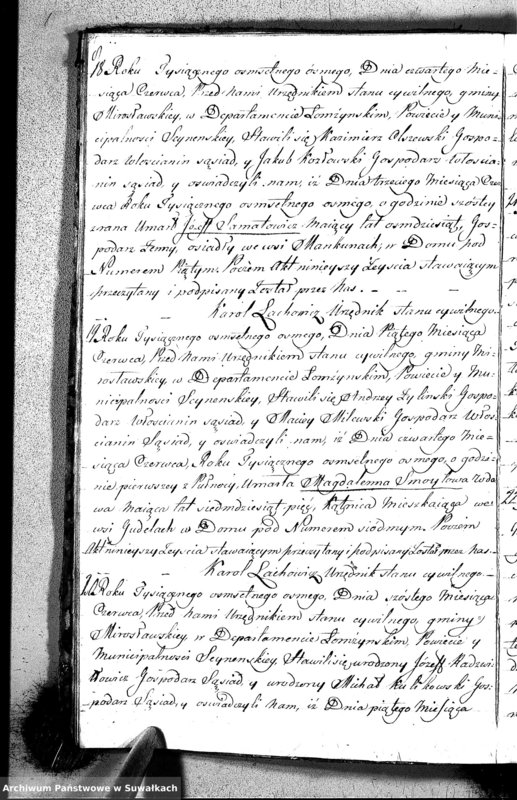 18 Roku Tysiącznego osmsetnego ósmego, Dnia czwartego mie-
siąca Czerwca, Przed Nami Urzędnikiem stanu cywilnego, gminy
Mirosławskiey, w Departamencie Łomżynskim, Powiecie y Muni
cipalnosci Seynenskiey, Stawili się Kazimierz Olszewski Gospo-
darz Włoscianin sąsiad, y Jakub Kozłowski Gospodarz Włoscia
nin sąsiad, y oswiadczyli nam, iż Dnia trzeciego Miesiąca Czer
wca Roku Tysiącznego osmsetnego osmego, o godzinie szóstey
zrana Umarł Jozeff Samatowicz Maiący lat osmdziesiąt, Gos-
podarz Zenny, osiadły we wsi Mankunach, w Domu pod
Numerem Piątym. Poczem Akt ninieyszy Zeyscia stawaiącym
przeczytany i podpisany Został przez Nas. —
Karol Lachowicz Urzędnik stanu cywilnego.
19 Roku Tysiącznego osmsetnego osmego, Dnia Piątego Miesiąca
Czerwca, Przed Nami Urzędnikiem stanu cywilnego, gminy Mi-
rosławskiey, w Departamencie Łomżynskim, Powiecie y Mu-
nicipalnosci Seynenskiey, Stawili się Andrzey Zylinski Gospo-
darz Włoscianin sąsiad y Maciey Milewski Gospodarz Włos-
cianin Sąsiad, y oswiadczyli nam, iż Dnia czwartego Mie-
siąca Czerwca, Roku Tysiącznego osmsetnego osmego, o godzi-
nie pierwszey z Pułnocy, Umarła Magdalenna Smoytowa Wdo
wa maiąca lat siedmdziesiąt pięć, Kątnica Mieszkaiąca we
wsi Judelach w Domu pod Numerem siodmym. Poczem
Akt ninieyszy Zeyscia stawaiącym przeczytany i podpisany Został przez Nas.
Karol Lachowicz Urzędnik stanu cywilnego —
Roku Tysiącznego osmsetnego osmego, Dnia szóstego Miesiąca
Czerwca Przed Nami Urzędnikiem stanu cywilnego, gminy
Mirosławskiey w Departamencie Łomżynskim, Powiecie y
Municipalnosci Seynenskiey, Stawili się, urodzony Jozeff Radzwi
łłowicz Gospodarz Sąsiad, y urodzony Michał Kulikowski Gos-
podarz Sąsiad, y oswiadczyli Nam, iż Dnia piątego Miesiąca
Archiwum Państwowe w Suwałkach